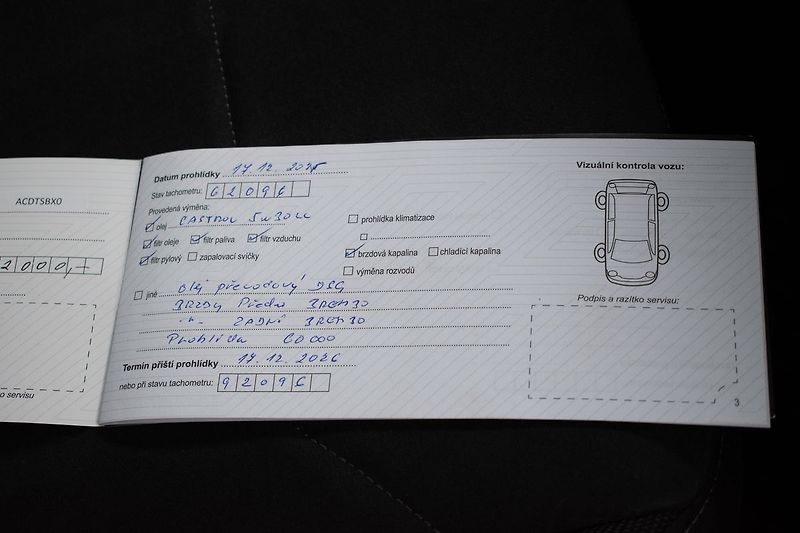 ACDTSBX0
2000,-
o servisu
Datum prohlídky 17.12.2025
Stav tachometru: 62096
Provedená výměna:
olej CASTROL 5W30 LL
prohlídka klimatizace
filtr oleje filtr paliva filtr vzduchu
filtr pylový zapalovací svíčky brzdová kapalina chladící kapalina
výměna rozvodů
jiné olej převodový DSG
BRZDY Předni BREMBO
-"- ZADNÍ BREMBO
Prohlídka 60 000
Termín příští prohlídky 17.12.2026
nebo při stavu tachometru: 92096
Vizuální kontrola vozu:
Podpis a razítko servisu:
3